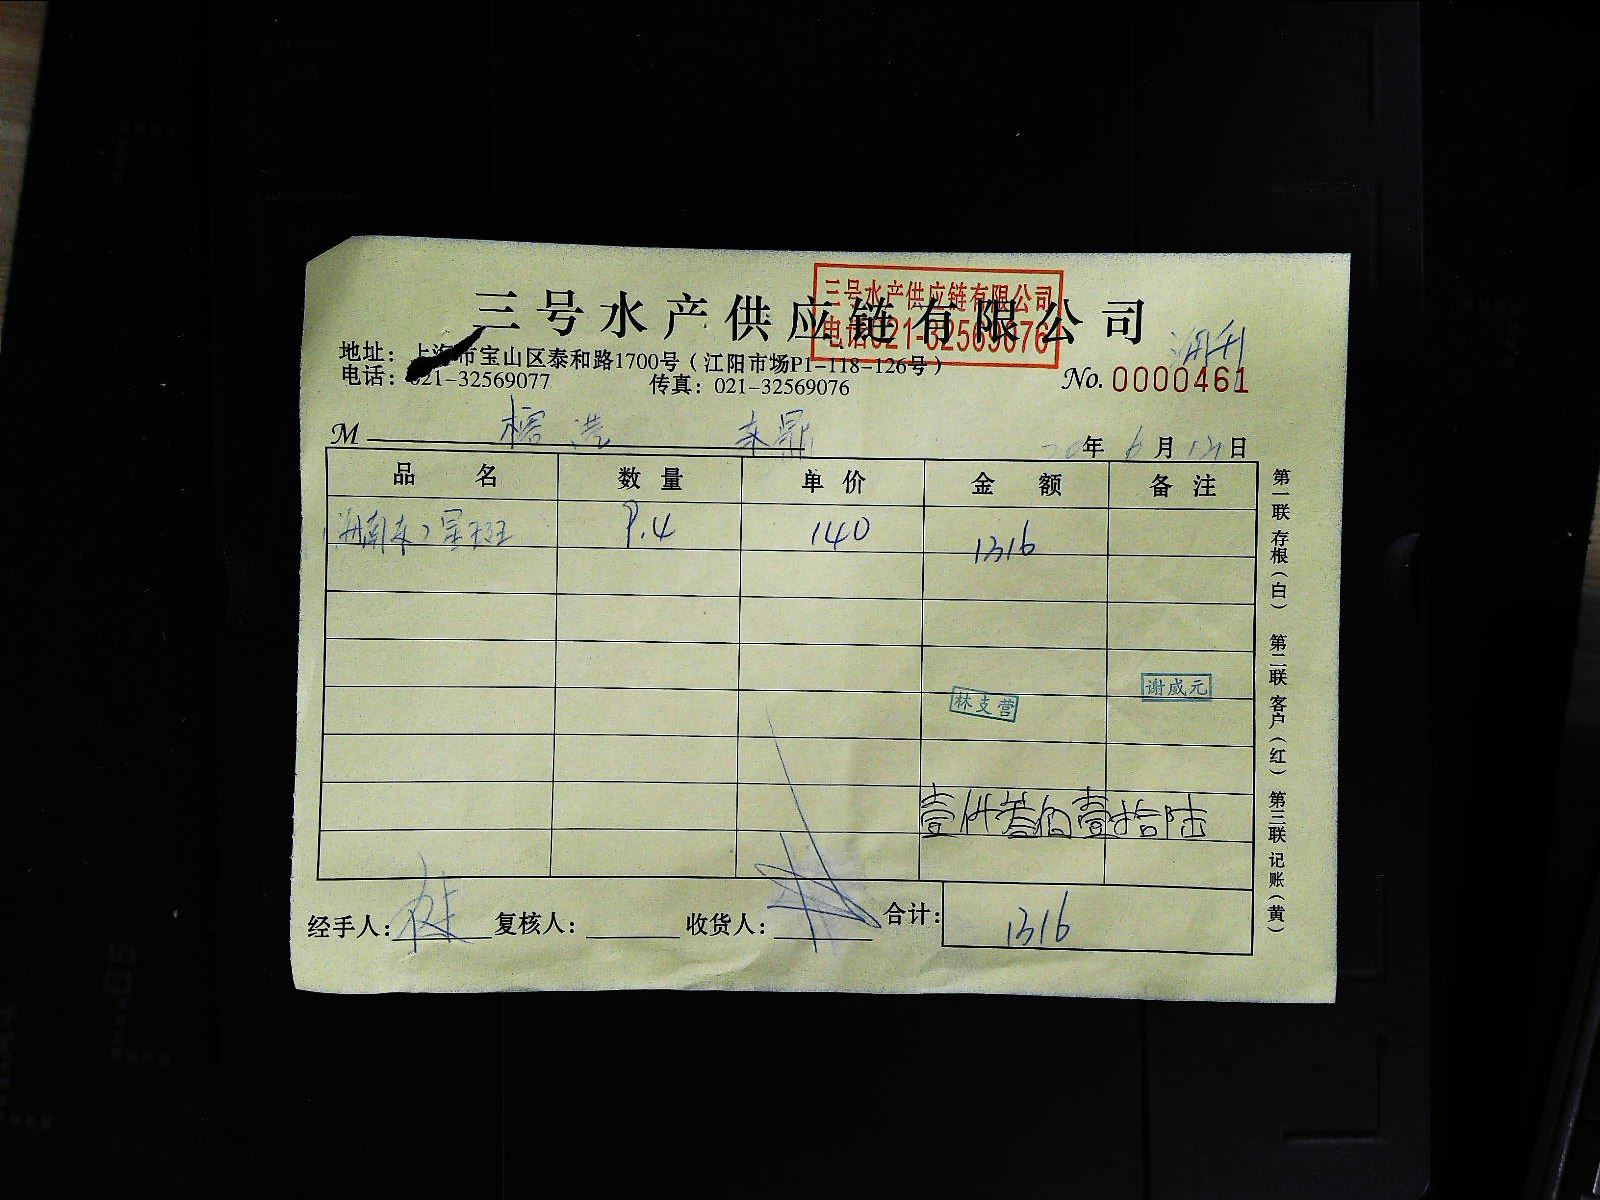 三号水产供应链有限公司
三号水产供应链有限公司
电话021-32569076
地址：上海市宝山区泰和路1700号（江阳市场P1-118-126号）
电话：021-32569077 传真：021-32569076
No. 0000461
M 东鼎
20年6月12日
品名 数量 单价 金额 备注
海南东星斑 9.4 140 1316
谢威元
林支营
壹仟叁佰壹拾陆
经手人： 林 复核人： 收货人： 合计： 1316
第一联 存根（白） 第二联 客户（红） 第三联 记账（黄）